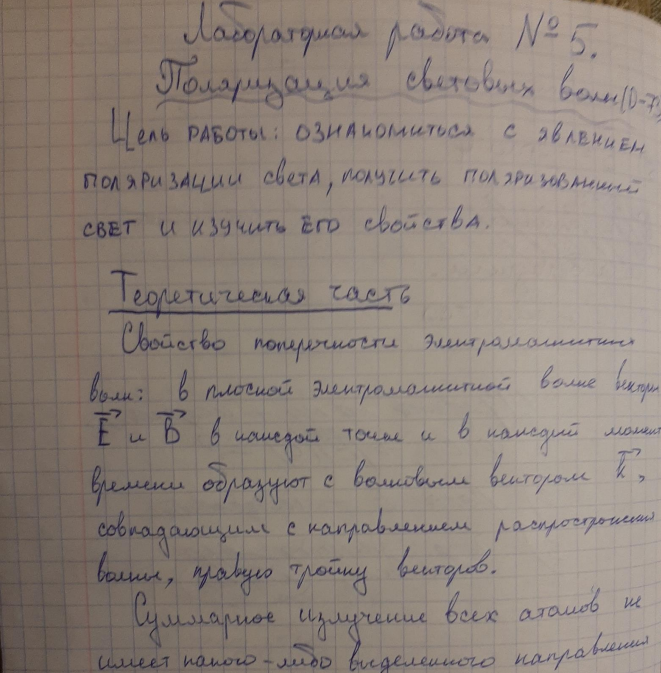 Лабораторная работа № 5.
Поляризация световых волн (0-7)
Цель работы: ознакомиться с явлением
поляризации света, получить поляризованный
свет и изучить его свойства.
Теоретическая часть
Свойство поперечности электромагнитных
волн: в плоской электромагнитной волне векторы
E и B в каждой точке и в каждый момент
времени образуют с волновым вектором k,
совпадающим с направлением распространения
волны, правую тройку векторов.
Суммарное излучение всех атомов не
имеет какого-либо выделенного направления